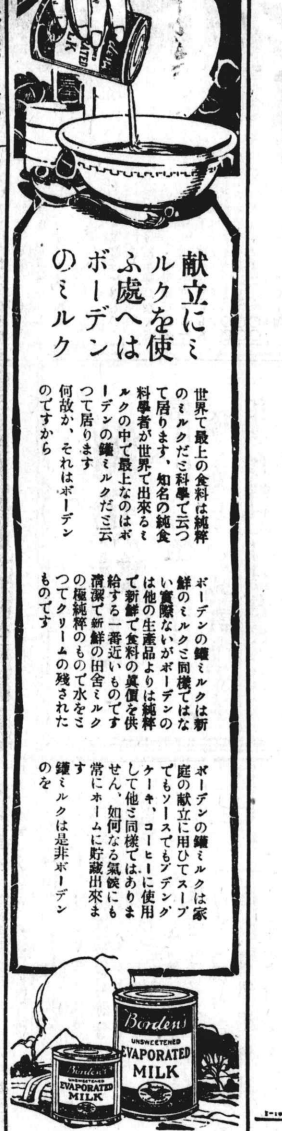 Borden's
EVAPORATED
MILK
献立にミ
ルクを使
ふ處へは
ボーデン
のミルク
世界で最上の食料は純粹
のミルクだと科學で云つ
て居ります、知名の純食
料學者が世界で出來るミ
ルクの中で最上なのはボ
ーデンの鑵ミルクだと云
つて居ります
何故か、それはボーデン
のですから
ボーデンの鑵ミルクは新
鮮のミルクと同樣ではな
い實際ないがボーデンの
は他の生產品よりは純粹
で新鮮で食料の眞價を供
給する一番近いものです
清潔で新鮮の田舎ミルク
の極純粹のもので水をと
つてクリームの殘された
ものです
ボーデンの鑵ミルクは家
庭の献立に用ひてスープ
でもソースでもプデング
ケーキ、コーヒーに使用
して他と同樣ではありま
せん、如何なる氣候にも
常にホームに貯藏出來ま
す
鑵ミルクは是非ボーデン
のを
Borden's
UNSWEETENED
EVAPORATED
MILK
Borden's
UNSWEETENED
EVAPORATED
MILK